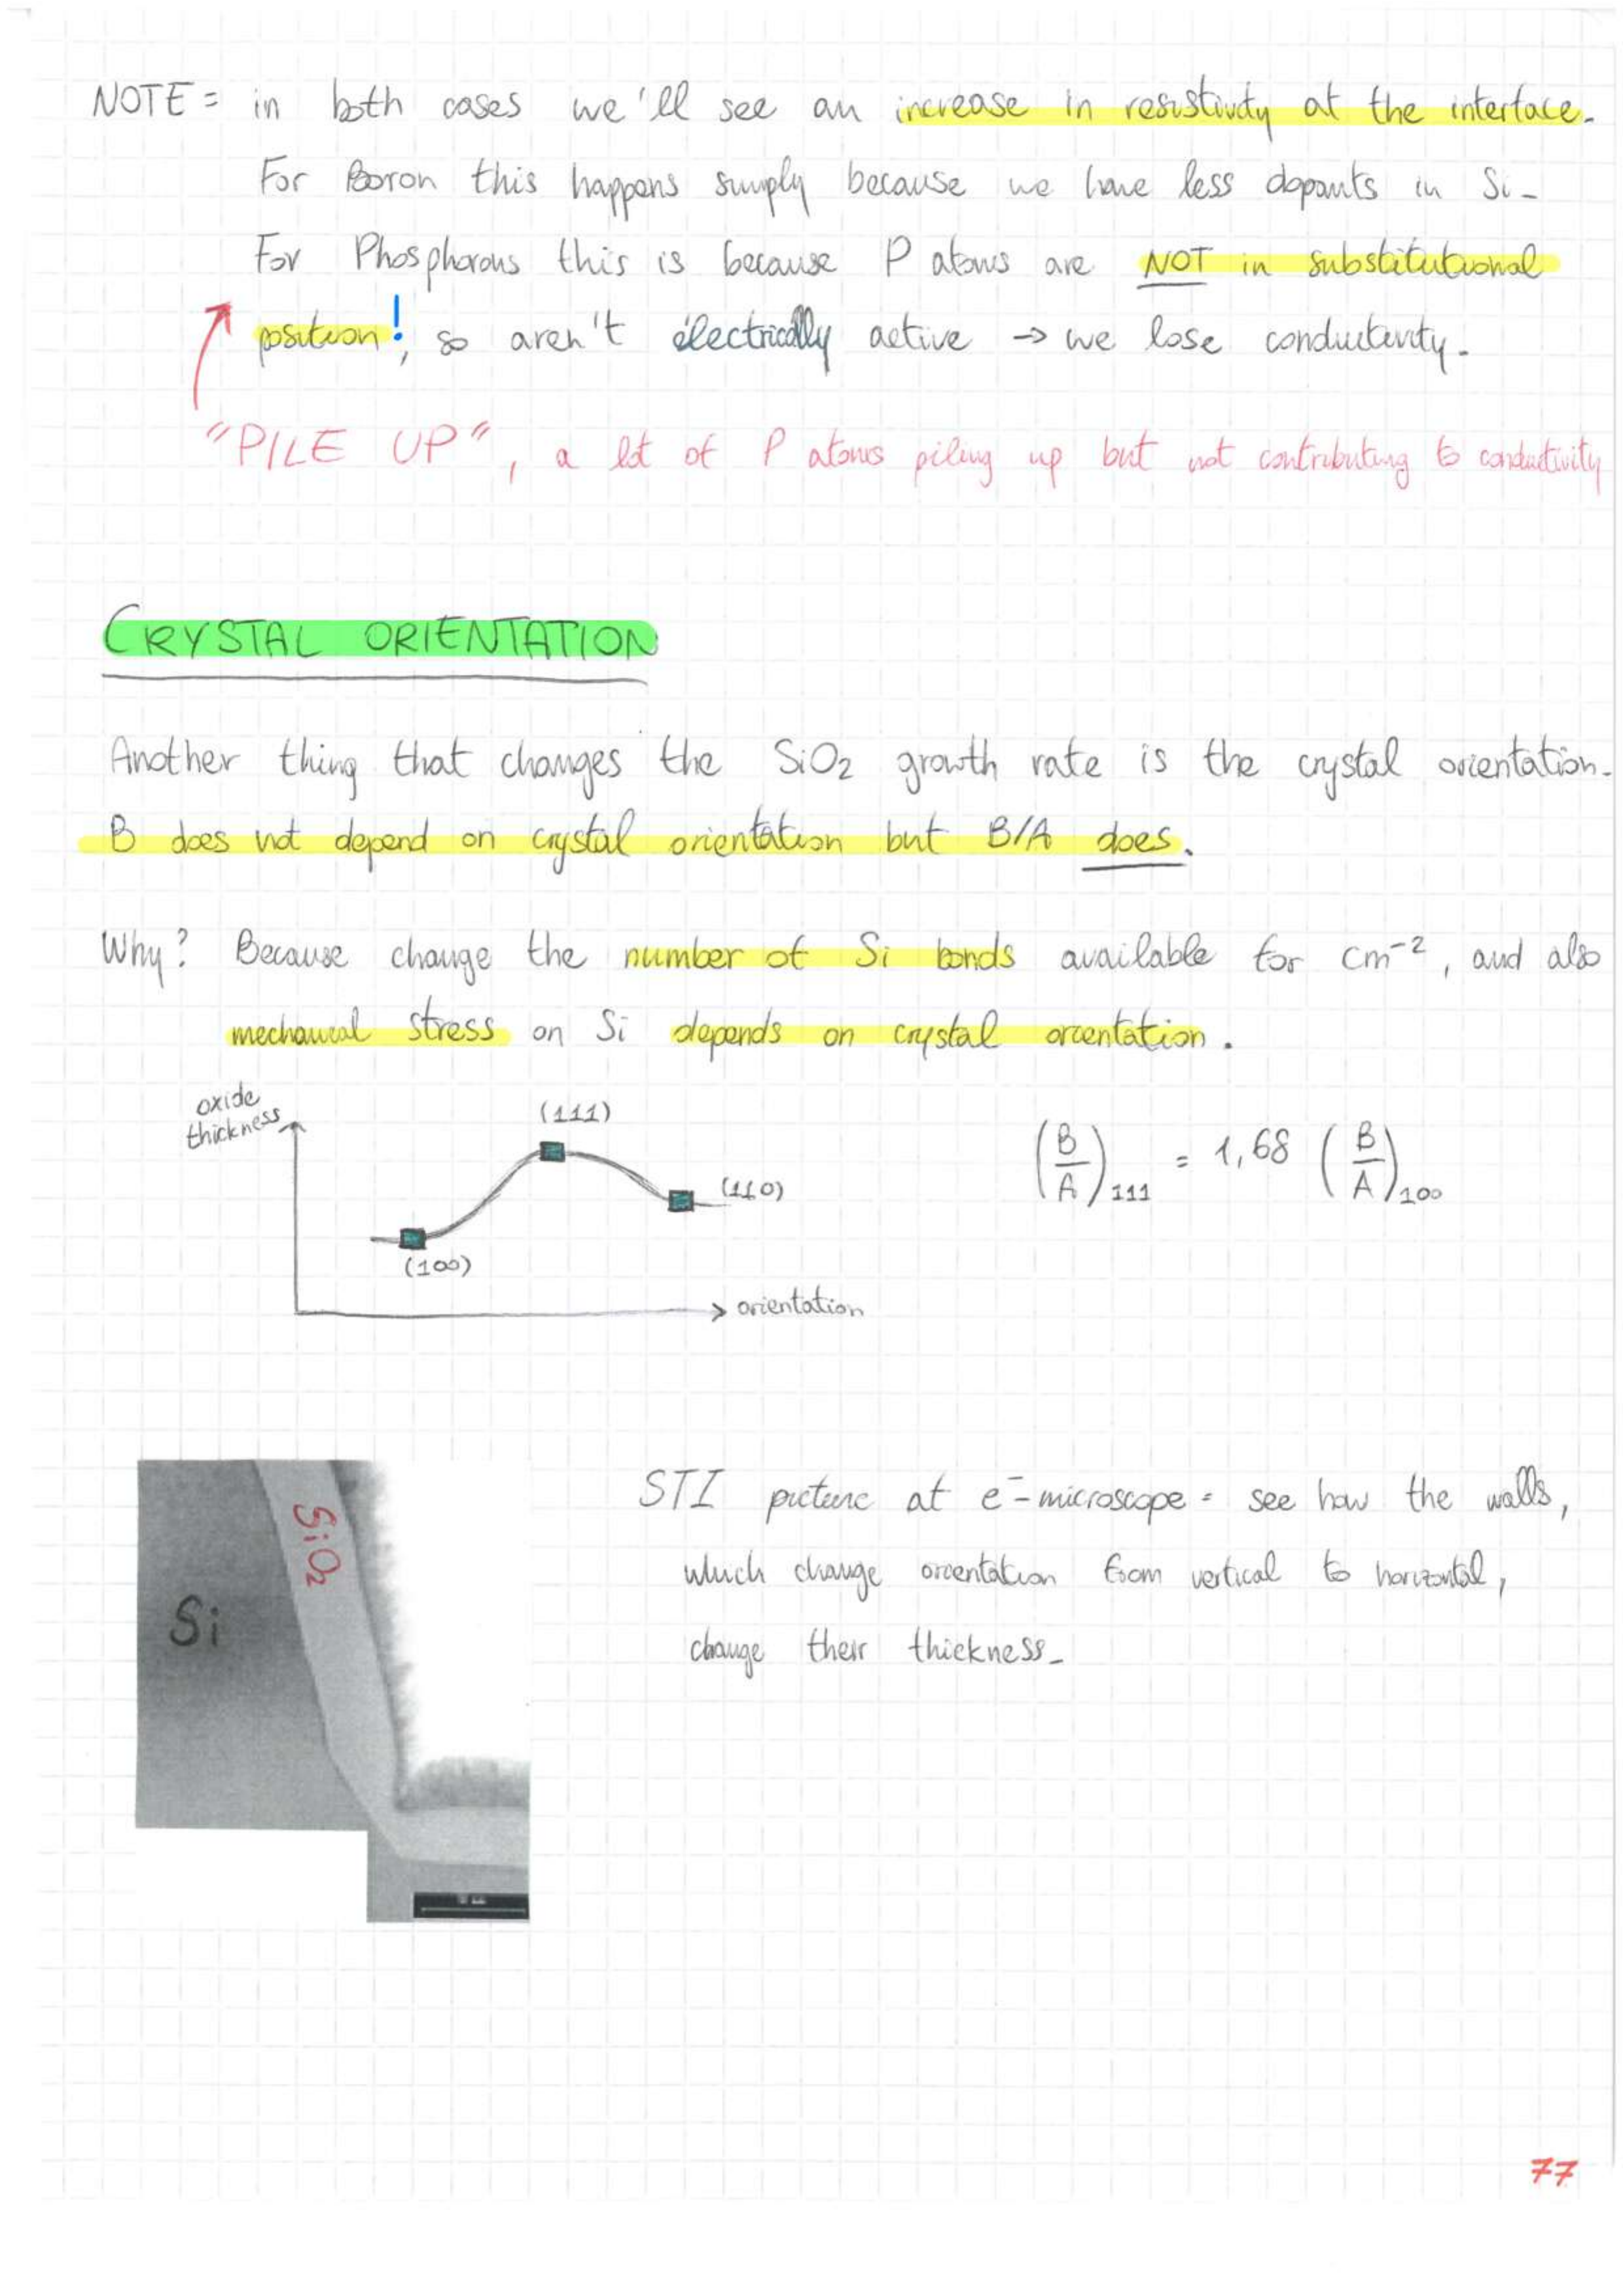 NOTE = in both cases we'll see an increase in resistivity at the interface.
For Boron this happens simply because we have less dopants in Si.
For Phosphorous this is because P atoms are NOT in substitutional
position!, so aren't electrically active → we lose conductivity.
"PILE UP", a lot of P atoms piling up but not contributing to conductivity
CRYSTAL ORIENTATION
Another thing that changes the SiO2 growth rate is the crystal orientation.
B does not depend on crystal orientation but B/A does.
Why? Because change the number of Si bonds available for cm⁻², and also
mechanical stress on Si depends on crystal orientation.
oxide
thickness
(111)
(110)
(100)
orientation
(B/A)111 = 1,68 (B/A)100
SiO2
Si
STI picture at e⁻-microscope = see how the walls,
which change orientation from vertical to horizontal,
change their thickness.
77